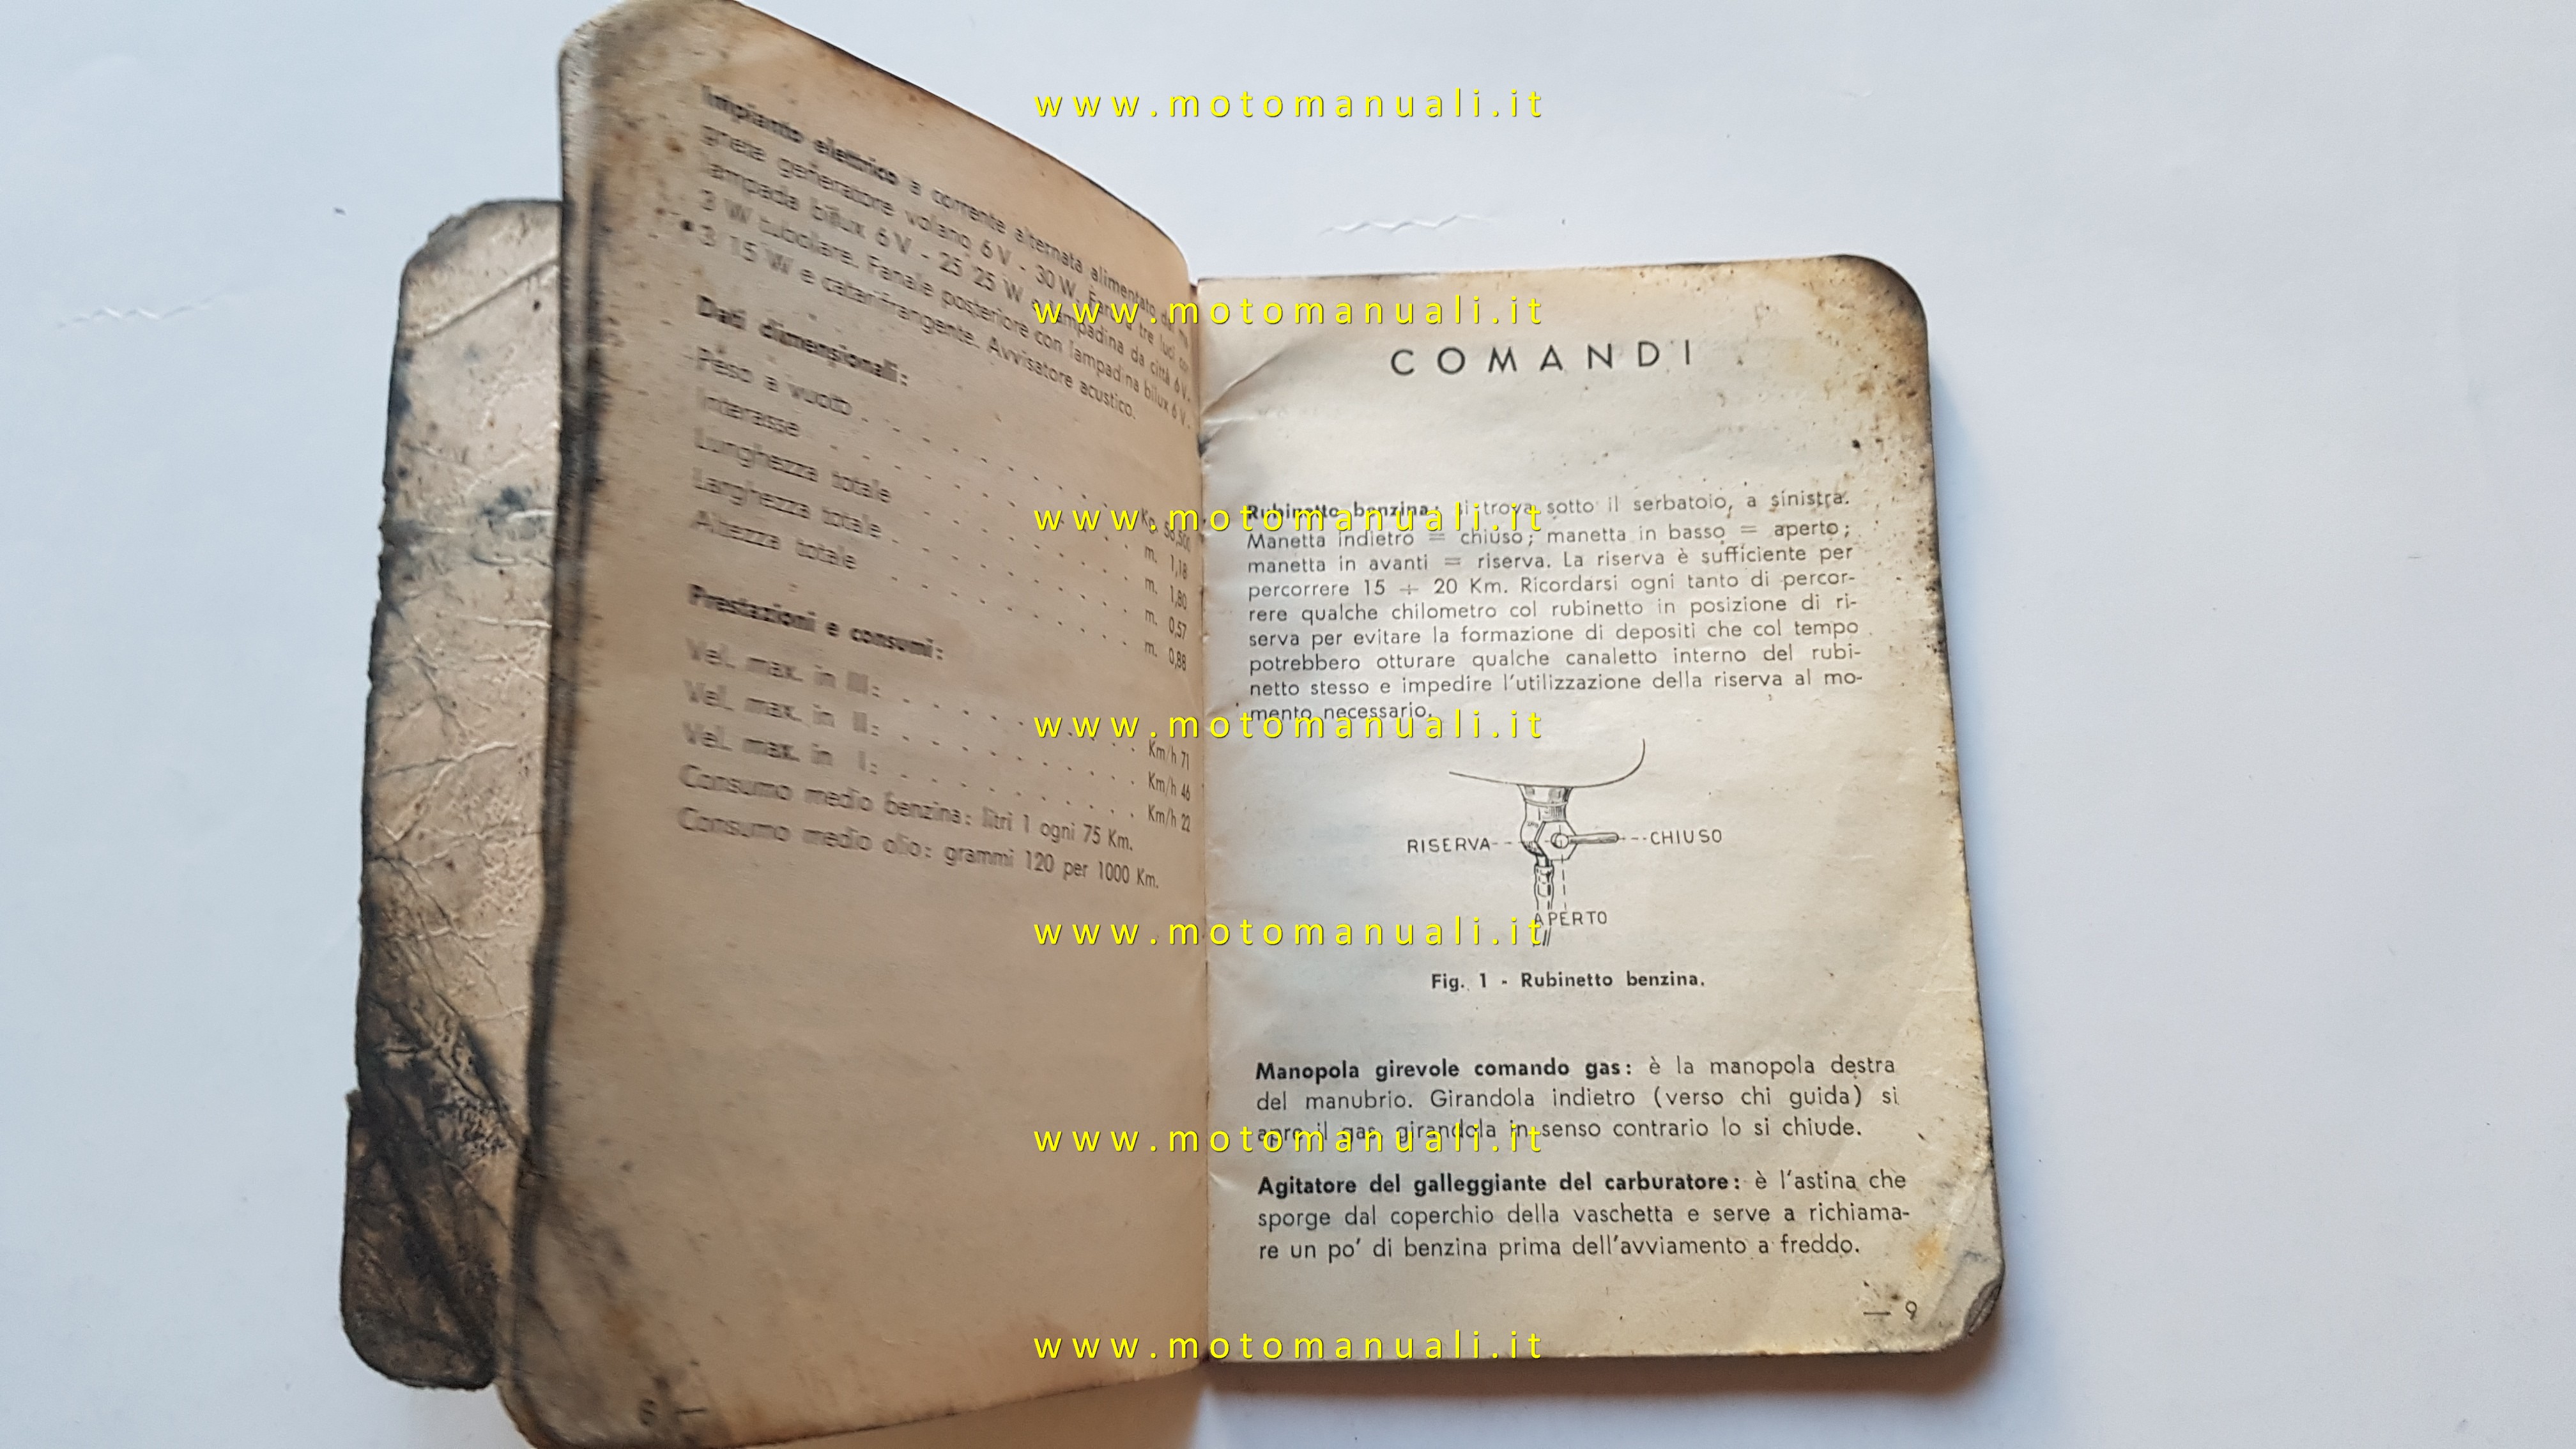 Impianto elettrico a corrente alternata alimentato dal ma-
gnete generatore volano 6 V - 30 W. Fanale a tre luci con
lampada bilux 6 V - 25 25 W e lampadina da città 6 V.
3 W tubolare. Fanale posteriore con lampadina bilux 6 V.
3 15 W e catarifrangente. Avvisatore acustico.
Dati dimensionali:
Peso a vuoto . . . . . . . . Kg.
Interasse . . . . . . . . m. 1,18
Lunghezza totale . . . . . . . . m. 1,80
Larghezza totale . . . . . . . . m. 0,57
Altezza totale . . . . . . . . m. 0,88
Prestazioni e consumi:
Vel. max. in III: . . . . . . . . Km/h 71
Vel. max. in II: . . . . . . . . Km/h 46
Vel. max. in I: . . . . . . . . Km/h 22
Consumo medio benzina: litri 1 ogni 75 Km.
Consumo medio olio: grammi 120 per 1000 Km.
—
COMANDI
Rubinetto benzina: si trova sotto il serbatoio, a sinistra.
Manetta indietro = chiuso; manetta in basso = aperto;
manetta in avanti = riserva. La riserva è sufficiente per
percorrere 15 ÷ 20 Km. Ricordarsi ogni tanto di percor-
rere qualche chilometro col rubinetto in posizione di ri-
serva per evitare la formazione di depositi che col tempo
potrebbero otturare qualche canaletto interno del rubi-
netto stesso e impedire l'utilizzazione della riserva al mo-
mento necessario.
RISERVA
CHIUSO
APERTO
Fig. 1 - Rubinetto benzina.
Manopola girevole comando gas: è la manopola destra
del manubrio. Girandola indietro (verso chi guida) si
apre il gas, girandola in senso contrario lo si chiude.
Agitatore del galleggiante del carburatore: è l'astina che
sporge dal coperchio della vaschetta e serve a richiama-
re un po' di benzina prima dell'avviamento a freddo.
— 9
www.motomanuali.it
www.motomanuali.it
www.motomanuali.it
www.motomanuali.it
www.motomanuali.it
www.motomanuali.it
www.motomanuali.it